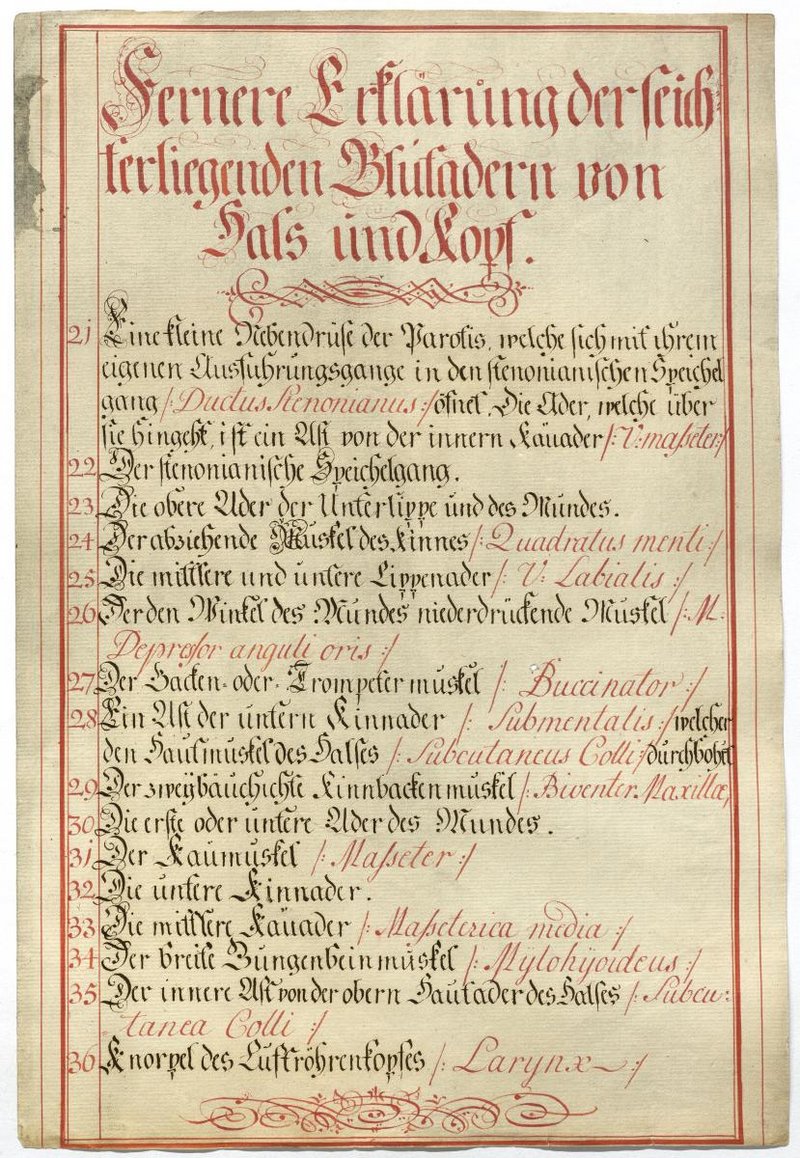 Fernere Erklärung der seich
terliegenden Blutadern von
Hals und Kopf.
21 Eine kleine Nebendrüse der Parotis, welche sich mit ihrem
eigenen Ausführungsgange in den stenonianischen Speichel
gang /: Ductus Stenonianus :/ öfnet. Die Ader, welche über
sie hingeht, ist ein Ast von der innern Käuader /: V: maßeter :/
22 Der stenonianische Speichelgang.
23 Die obere Ader der Unterlippe und des Mundes.
24 Der abziehende Muskel des Kinnes /: Quadratus menti :/
25 Die mittlere und untere Lippenader /: V: Labialis :/
26 Der den Winkel des Mundes niederdrückende Muskel /: M.
Depreßor anguli oris :/
27 Der Backen- oder Trompetermuskel /: Buccinator :/
28 Ein Ast der untern Kinnader /: Submentalis :/ welcher
den Hautmuskel des Halses /: Subcutaneus Colli :/ durchbohrt
29 Der zweybäuchichte Kinnbackenmuskel /: Biventer Maxillæ,
30 Die erste oder untere Ader des Mundes.
31 Der Kaumuskel /: Maßeter :/
32 Die untere Kinnader.
33 Die mittlere Käuader /: Maßeterica media :/
34 Der breite Zungenbeinmuskel /: Mylohÿoideus :/
35 Der innere Ast von der obern Hautader des Halses /: Subcu:
tanea Colli :/
36 Knorpel des Luftröhrenkopfes /: Larynx :/